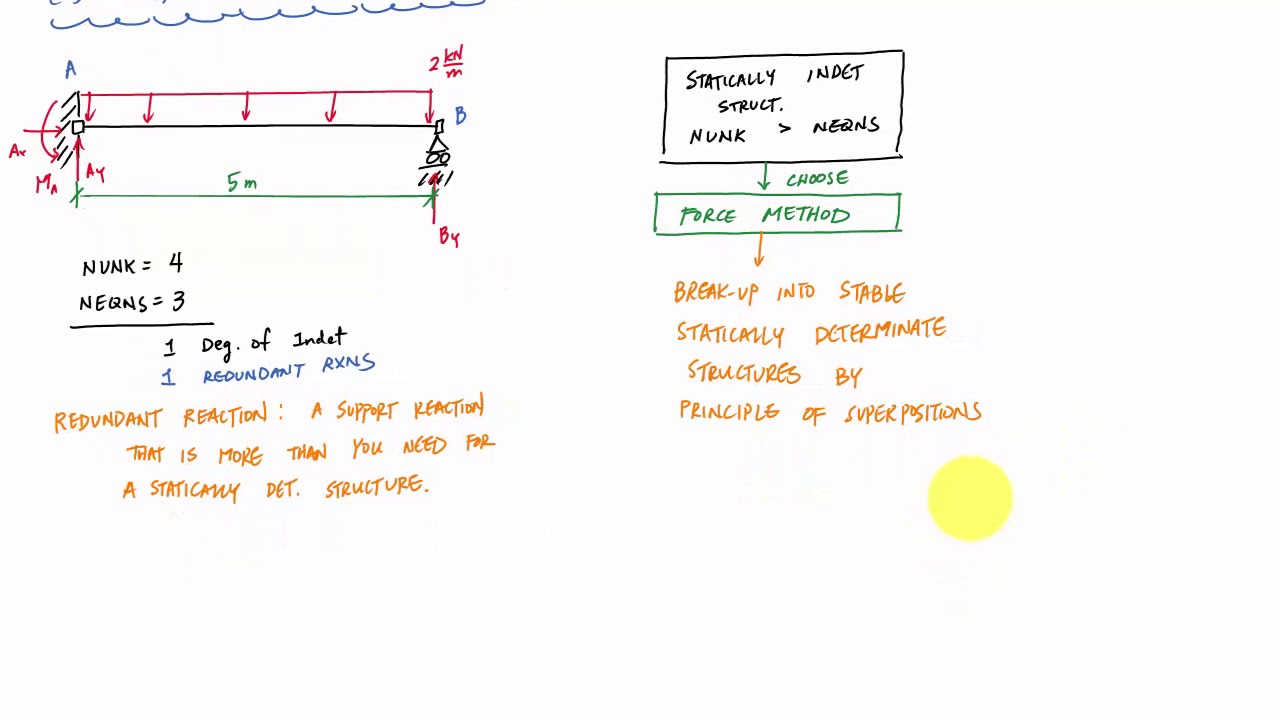 A
2 kN/m
B
Ax
MA
Ay
5m
By
NUNK = 4
NEQNS = 3
1 Deg. of Indet
1 REDUNDANT RXNS
REDUNDANT REACTION: A SUPPORT REACTION
THAT IS MORE THAN YOU NEED FOR
A STATICALLY DET. STRUCTURE.
STATICALLY INDET
STRUCT.
NUNK > NEQNS
CHOOSE
FORCE METHOD
BREAK-UP INTO STABLE
STATICALLY DETERMINATE
STRUCTURES BY
PRINCIPLE OF SUPERPOSITIONS